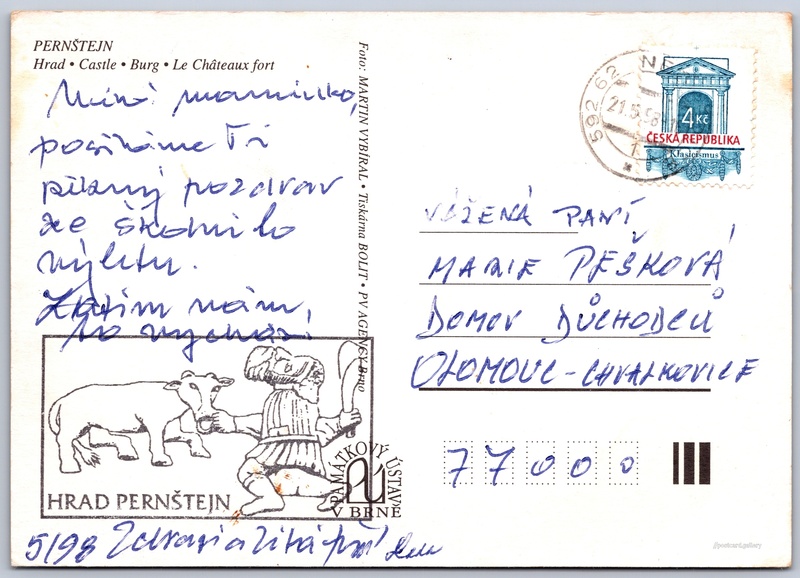 PERNŠTEJN
Hrad • Castle • Burg • Le Châteaux fort
Milá maminko,
posíláme Ti
pěkný pozdrav
ze školního
výletu.
Zatím nám
to vychází
Foto: MARTIN VYBÍRAL • Tiskárna BOLIT • PV AGENCY Brno
592 62
NE
21.5.98
4 Kč
ČESKÁ REPUBLIKA
Klasicismus
VÁŽENÁ PANÍ
MARIE PEŠKOVÁ
DOMOV DŮCHODCŮ
OLOMOUC-CHVALKOVICE
77000
HRAD PERNŠTEJN
PAMÁTKOVÝ ÚSTAV
V BRNĚ
5/98 Zdraví a